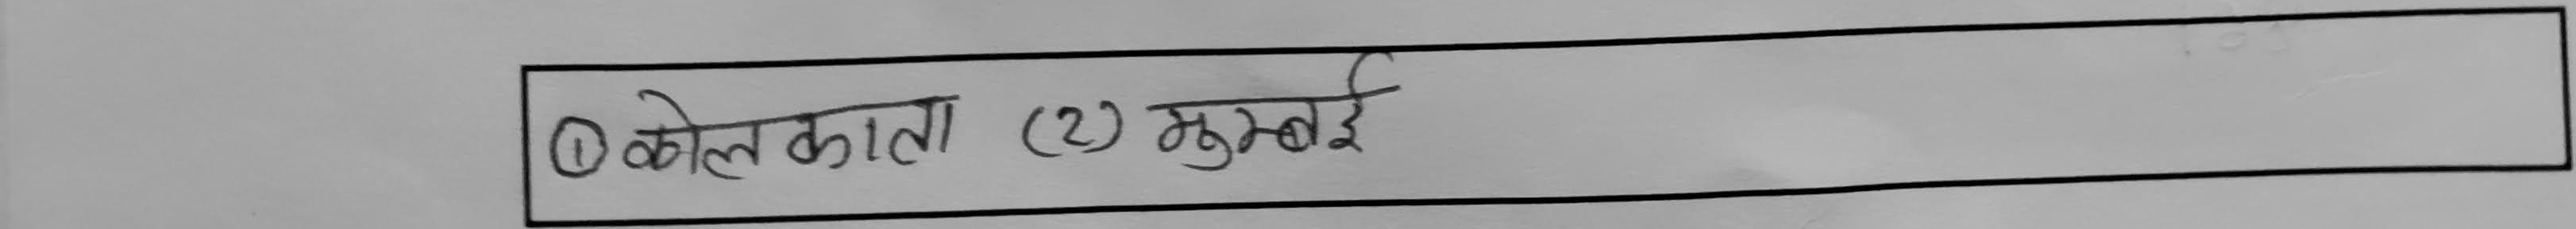 ① कोलकाता (2) मुम्बई